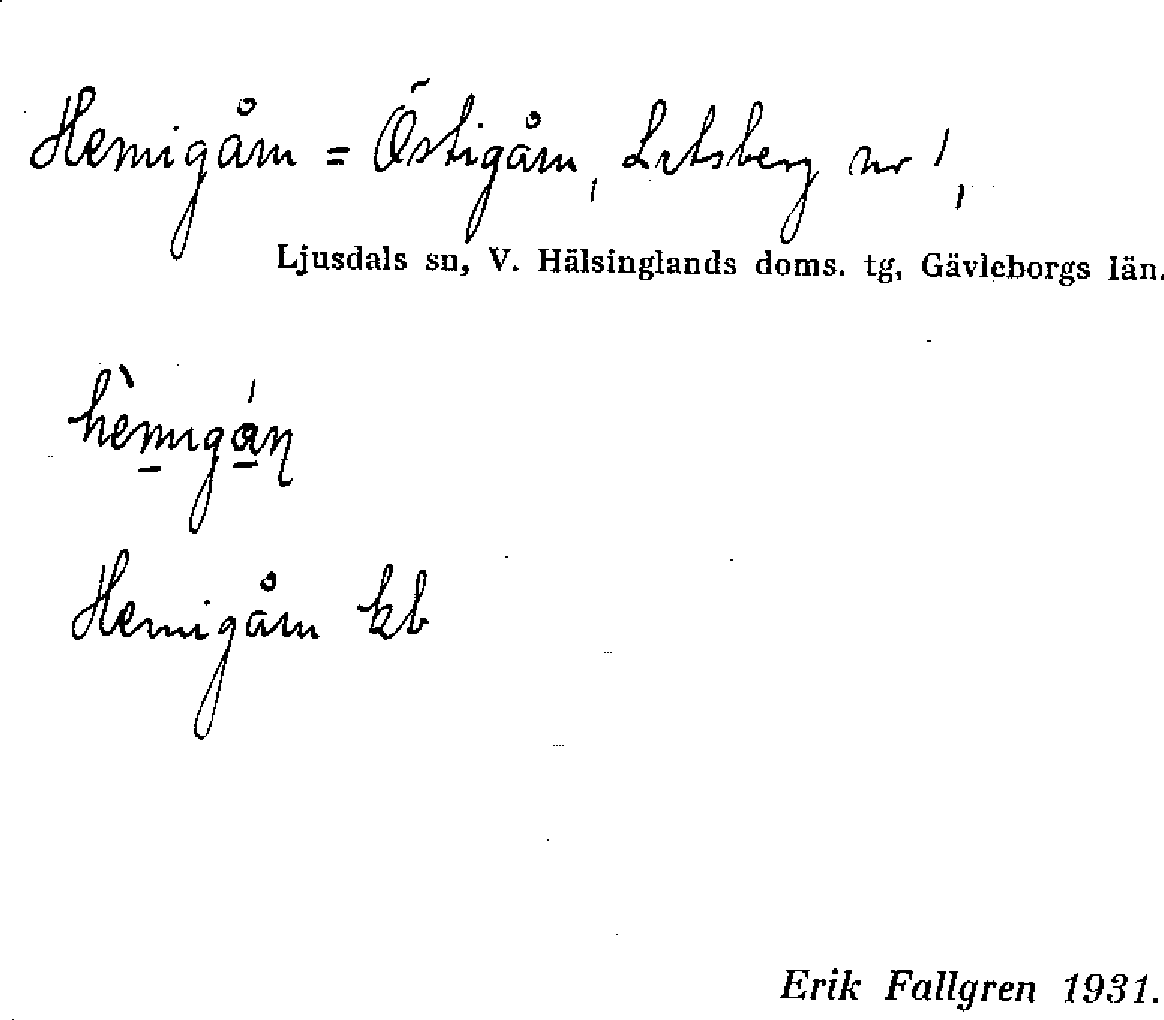 Hemigåm = Östigåm, Letsberg nr 1,
Ljusdals sn, V. Hälsinglands doms. tg, Gävleborgs län.
Hemigåm kb
Erik Fallgren 1931.